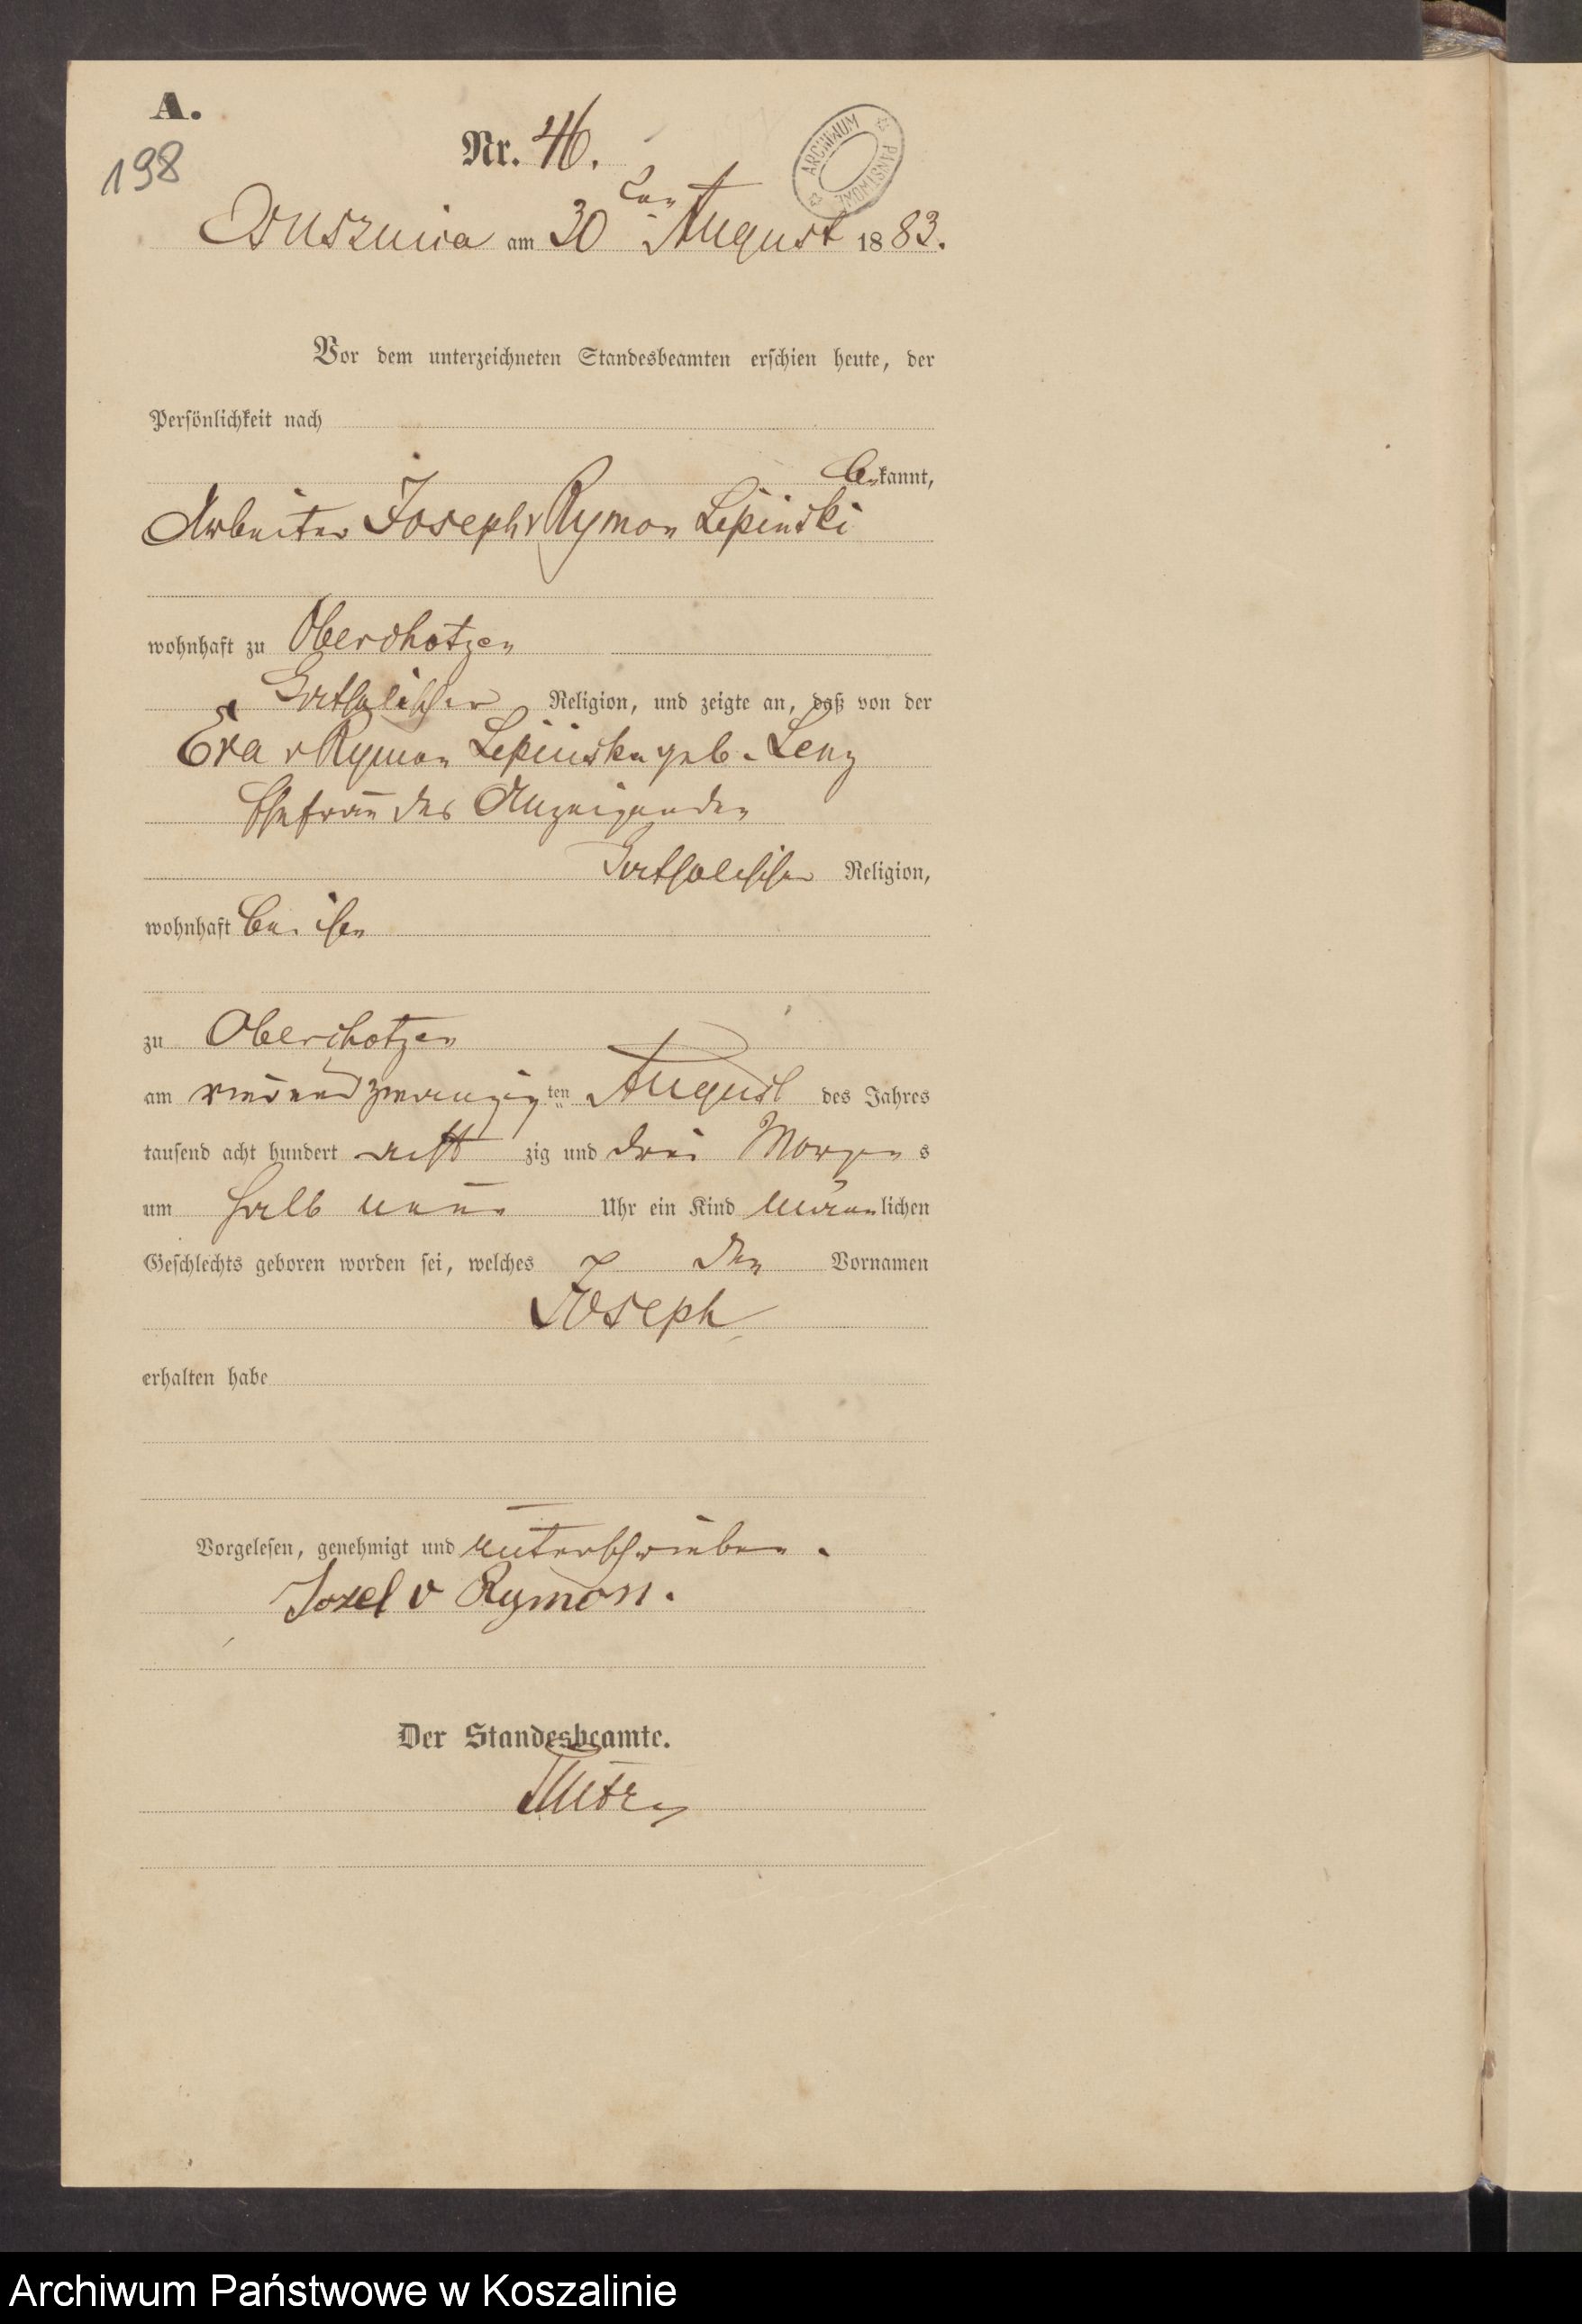 A.
198
Nr. 46.
ARCHIWUM PAŃSTWOWE
Ossusznica am 30 ten August 1883.
Vor dem unterzeichneten Standesbeamten erschien heute, der
Persönlichkeit nach
bekannt,
Arbeiter Joseph v Rymon Lipinski
wohnhaft zu Oberchotzen
katholischer Religion, und zeigte an, daß von der
Eva v Rymon Lipinska geb. Lenz
Ehefrau des Anzeigenden
katholischer Religion,
wohnhaft bei ihm
zu Oberchotzen
am vierundzwanzigten August des Jahres
tausend acht hundert achtzig und drei Morgens
um halb neun Uhr ein Kind männlichen
Geschlechts geboren worden sei, welches den Vornamen
Joseph
erhalten habe
Vorgelesen, genehmigt und unterschrieben.
Jozef v Rymon.
Der Standesbeamte.
Archiwum Państwowe w Koszalinie